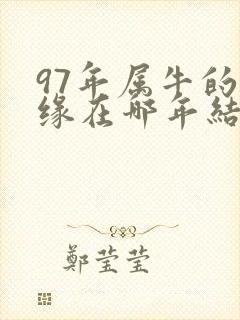 97年属牛的
缘在哪年結
鄭莹莹